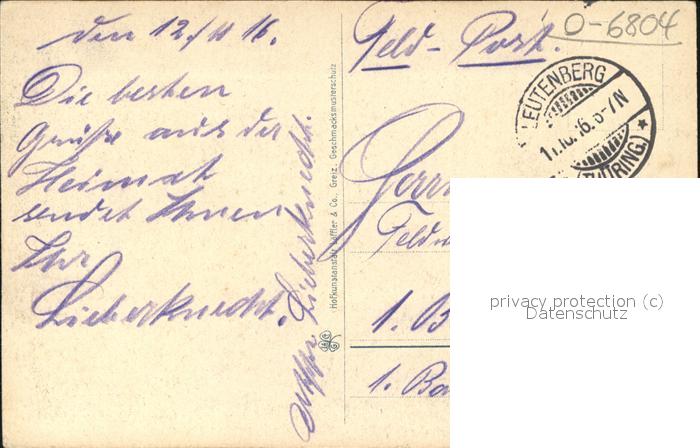 den 12./11 16.
Die besten
Grüße aus der
Heimat
sendet Ihnen
Ihr
Lieberknecht.
Lieberknecht.
Hofkunstanstalt Löffler & Co., Greiz. Geschmacksmusterschutz
Feld-Post.
O-6804
LEUTENBERG
(THÜRING.)
Herrn
1. B
1. Ba
privacy protection (c)
Datenschutz